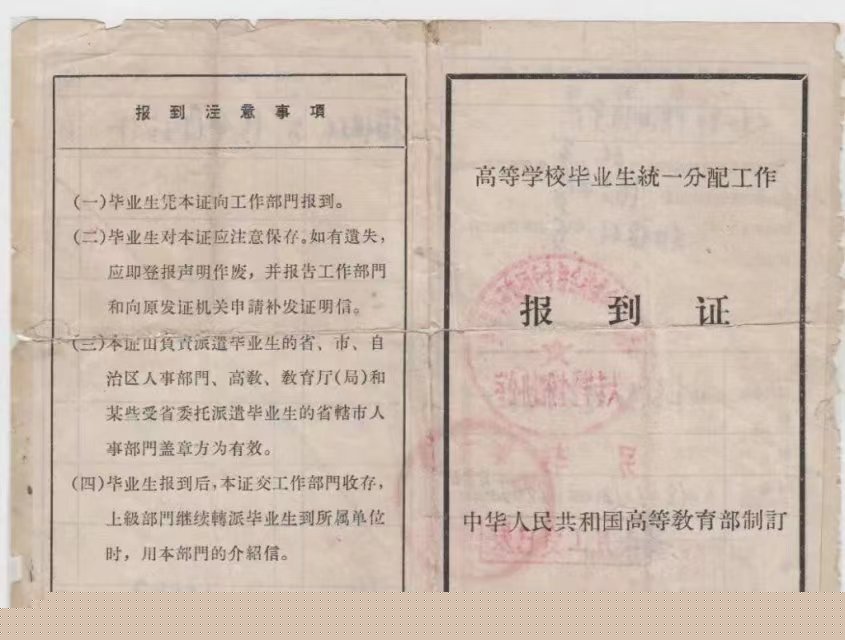 报到注意事項
(一)毕业生凭本证向工作部門报到。
(二)毕业生对本证应注意保存。如有遺失，
应即登报声明作废，并报告工作部門
和向原发证机关申請补发证明信。
(三)本证由負責派遣毕业生的省、市、自
治区人事部門、高教、教育厅(局)和
某些受省委托派遣毕业生的省轄市人
事部門盖章方为有效。
(四)毕业生报到后，本证交工作部門收存，
上級部門继续轉派毕业生到所属单位
时，用本部門的介紹信。
高等学校毕业生統一分配工作
报到证
中华人民共和国高等教育部制訂